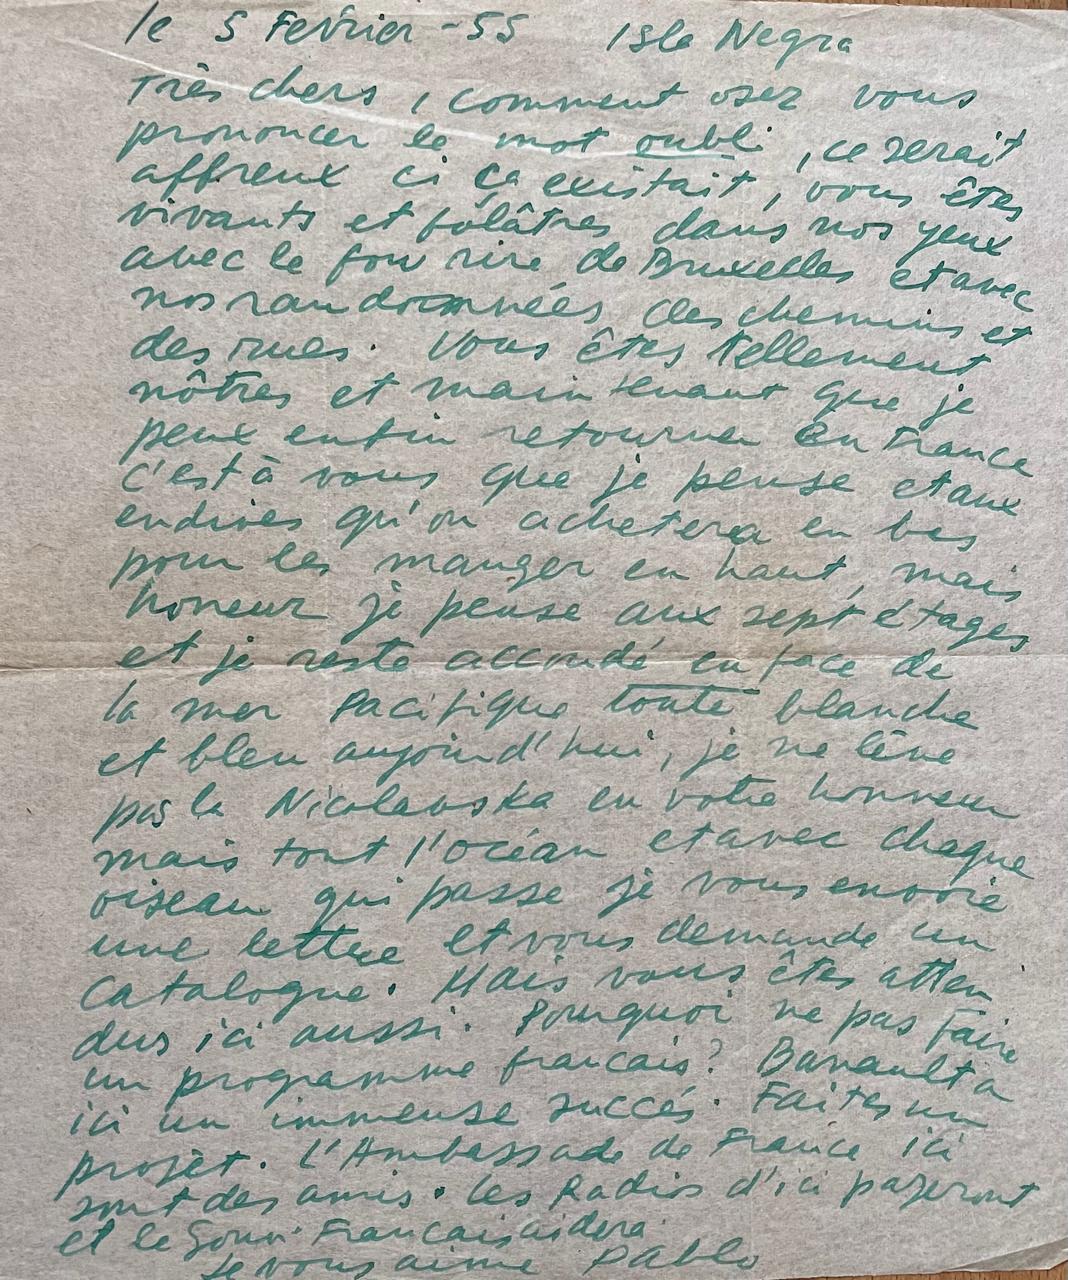 le 5 Fevrier - 55 Isla Negra
Très chers, comment osez vous
prononcer le mot oubli, ce serait
affreux ci ça existait, vous êtes
vivants et folâtres dans nos yeux
avec le fou rire de Bruxelles et avec
nos randonnées des chemins et
des rues. Vous êtes tellement
nôtres et maintenant que je
peux enfin retourner en France
c'est à vous que je pense et aux
endives qu'on achetera en bas
pour les manger en haut, mais
horreur je pense aux sept étages
et je reste accoudé en face de
la mer Pacifique toute blanche
et bleu aujourd'hui, je ne lève
pas la Nicolavska en votre honneur
mais tout l'océan et avec chaque
oiseau qui passe je vous envoie
une lettre et vous demande un
catalogue. Mais vous êtes atten
dus ici aussi. Pourquoi ne pas faire
un programme francais? Barrault a
ici un immense succés. Faites un
projèt. L'Ambassade de France ici
sont des amis. Les Radios d'ici payeront
et le Gouv. Francais aidera
Je vous aime Pablo